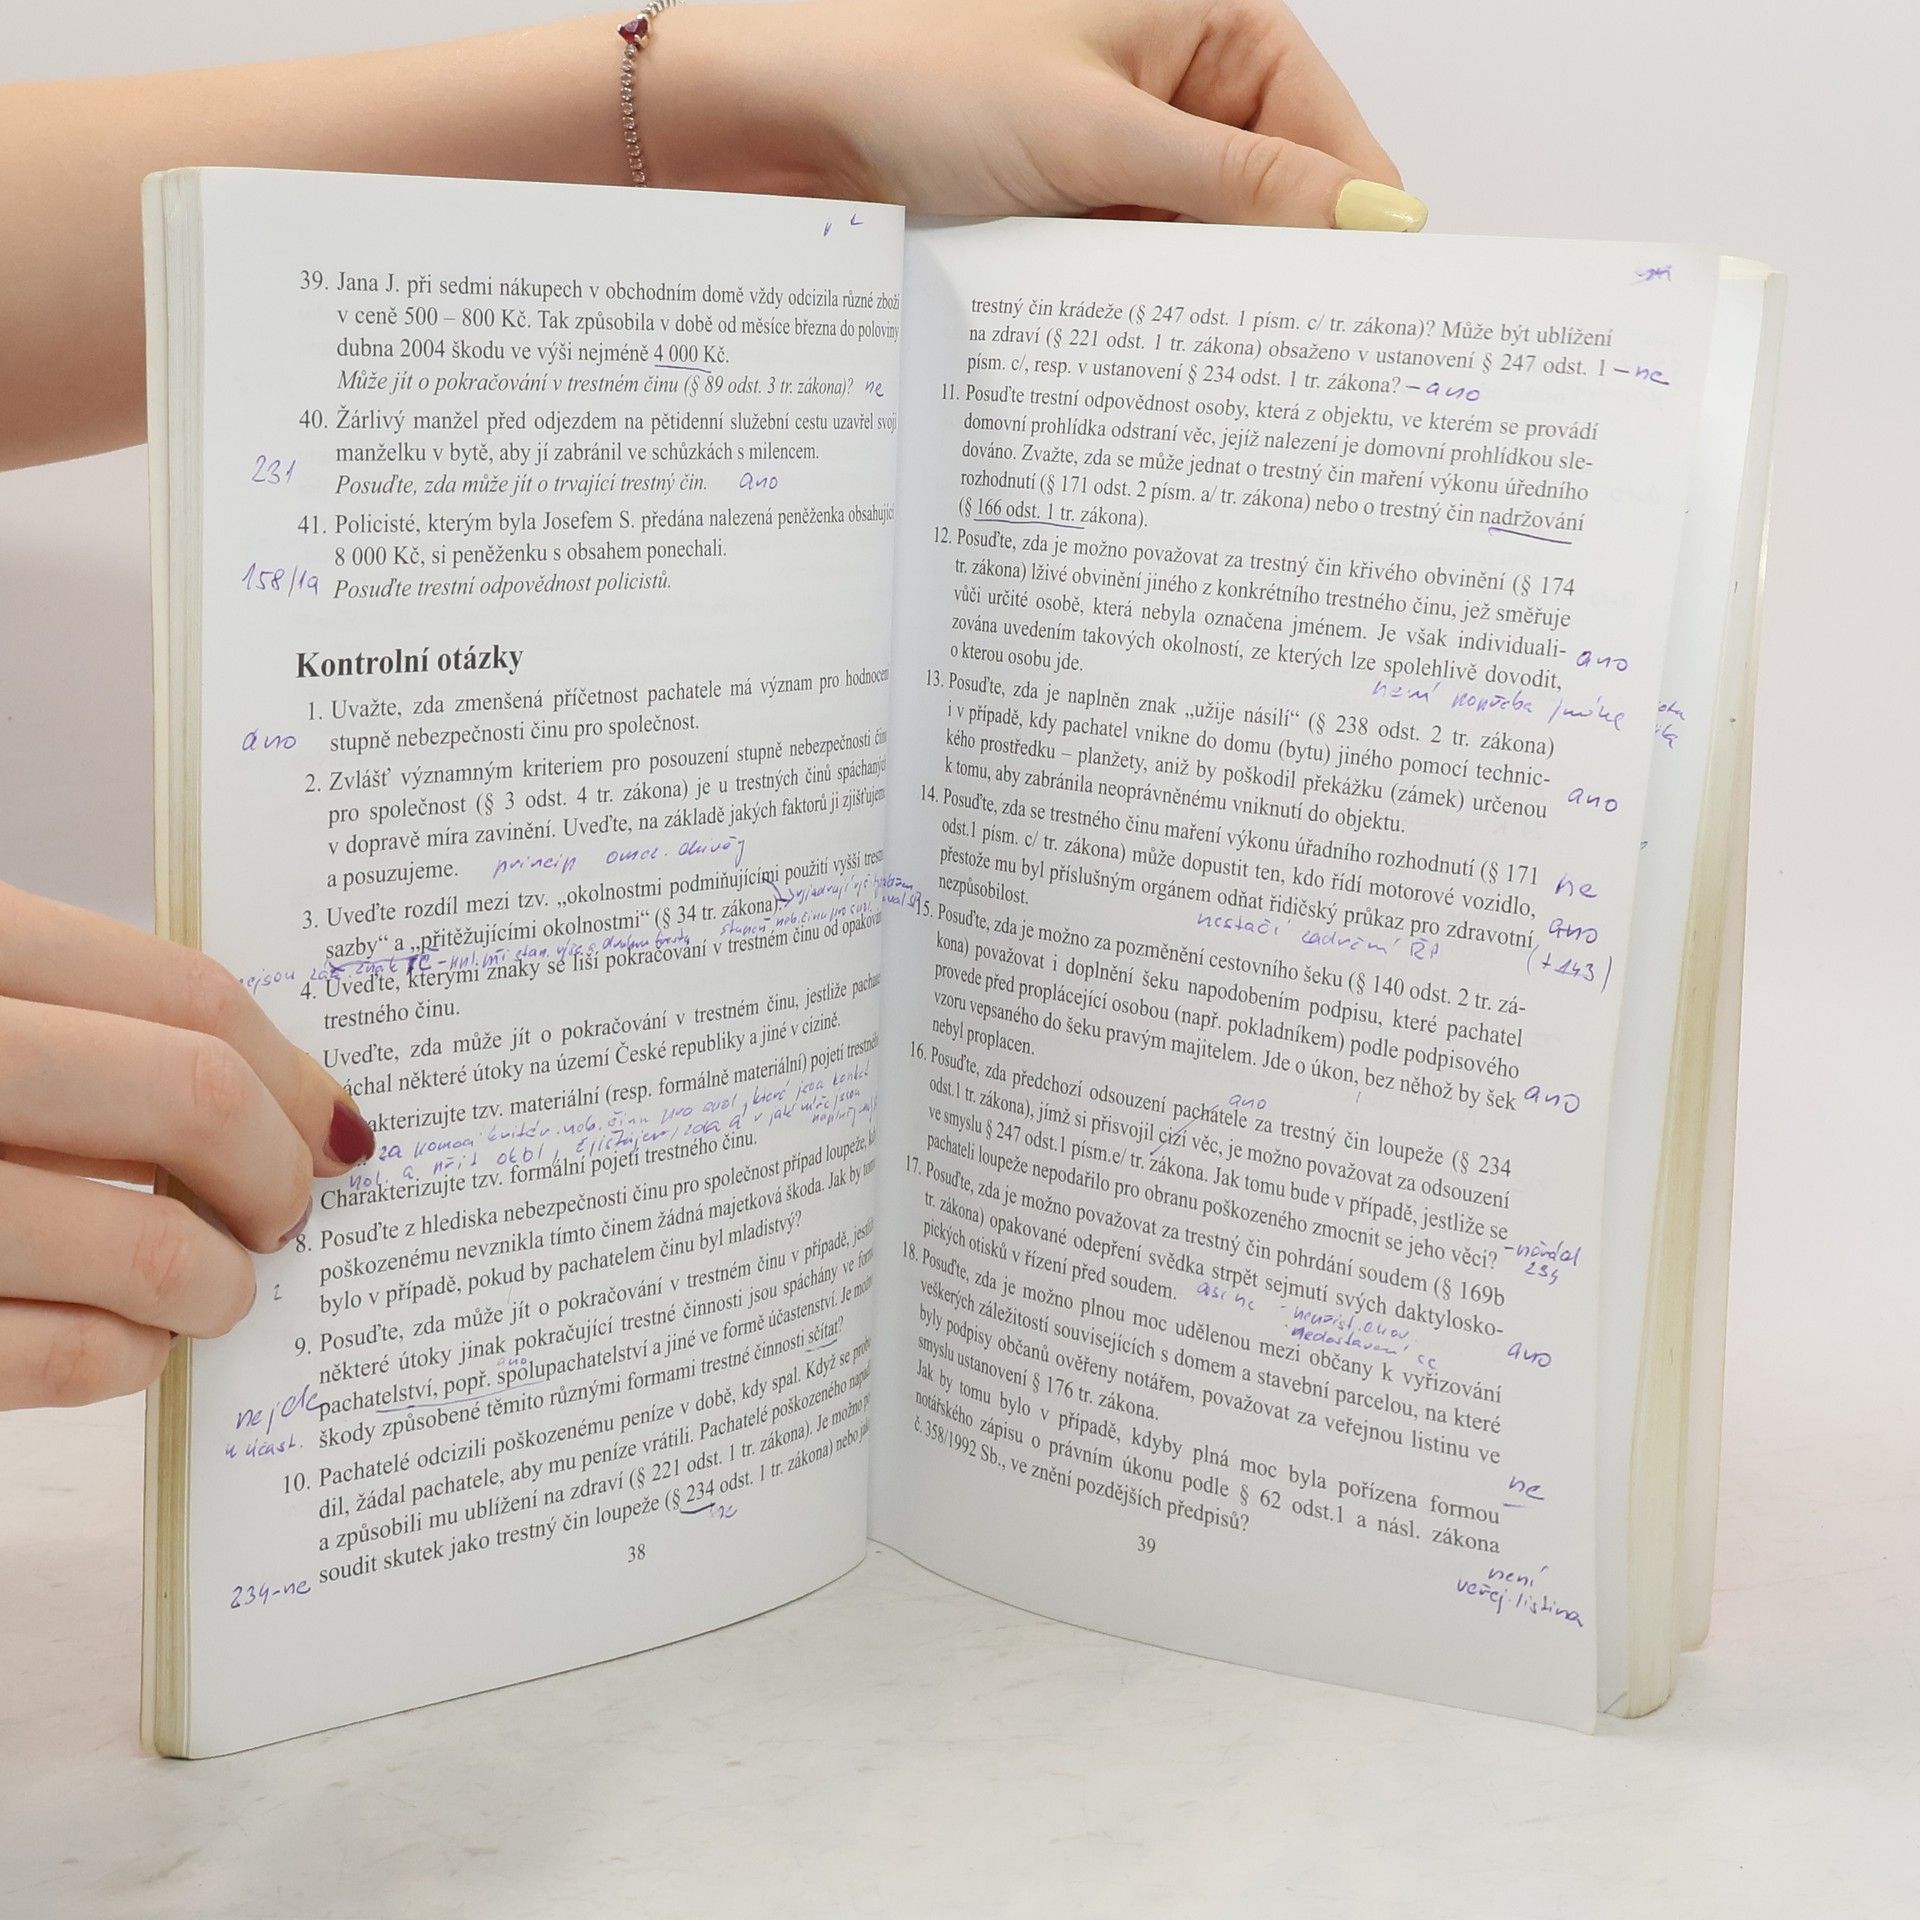 39. Jana J. při sedmi nákupech v obchodním domě vždy odcizila různé zboží
v ceně 500 – 800 Kč. Tak způsobila v době od měsíce března do poloviny
dubna 2004 škodu ve výši nejméně 4 000 Kč.
Může jít o pokračování v trestném činu (§ 89 odst. 3 tr. zákona)? ne
40. Žárlivý manžel před odjezdem na pětidenní služební cestu uzavřel svoji
manželku v bytě, aby jí zabránil ve schůzkách s milencem.
231 Posuďte, zda může jít o trvající trestný čin. ano
41. Policisté, kterým byla Josefem S. předána nalezená peněženka obsahující
8 000 Kč, si peněženku s obsahem ponechali.
158/1a Posuďte trestní odpovědnost policistů.
Kontrolní otázky
1. Uvažte, zda zmenšená příčetnost pachatele má význam pro hodnocení
ano stupně nebezpečnosti činu pro společnost.
2. Zvlášť významným kriteriem pro posouzení stupně nebezpečnosti činu
pro společnost (§ 3 odst. 4 tr. zákona) je u trestných činů spáchaných
v dopravě míra zavinění. Uveďte, na základě jakých faktorů ji zjišťujeme
a posuzujeme. princip omez. důvěry
3. Uveďte rozdíl mezi tzv. „okolnostmi podmiňujícími použití vyšší trestní
sazby“ a „přitěžujícími okolnostmi“ (§ 34 tr. zákona).
4. Uveďte, kterými znaky se liší pokračování v trestném činu od opakování
trestného činu.
Uveďte, zda může jít o pokračování v trestném činu, jestliže pachatel
áchal některé útoky na území České republiky a jiné v cizině.
akterizujte tzv. materiální (resp. formálně materiální) pojetí trestného
Charakterizujte tzv. formální pojetí trestného činu.
8. Posuďte z hlediska nebezpečnosti činu pro společnost případ loupeže, kdy
poškozenému nevznikla tímto činem žádná majetková škoda. Jak by tomu
bylo v případě, pokud by pachatelem činu byl mladistvý?
9. Posuďte, zda může jít o pokračování v trestném činu v případě, jestliže
některé útoky jinak pokračující trestné činnosti jsou spáchány ve formě
ano
pachatelství, popř. spolupachatelství a jiné ve formě účastenství. Je možno
nejde škody způsobené těmito různými formami trestné činnosti sčítat?
u účast.
10. Pachatelé odcizili poškozenému peníze v době, kdy spal. Když se probu-
dil, žádal pachatele, aby mu peníze vrátili. Pachatelé poškozeného napadli
a způsobili mu ublížení na zdraví (§ 221 odst. 1 tr. zákona). Je možno po-
soudit skutek jako trestný čin loupeže (§ 234 odst. 1 tr. zákona) nebo jako
ne
234-ne
38
trestný čin krádeže (§ 247 odst. 1 písm. c/ tr. zákona)? Může být ublížení
na zdraví (§ 221 odst. 1 tr. zákona) obsaženo v ustanovení § 247 odst. 1 – ne
písm. c/, resp. v ustanovení § 234 odst. 1 tr. zákona? – ano
11. Posuďte trestní odpovědnost osoby, která z objektu, ve kterém se provádí
domovní prohlídka odstraní věc, jejíž nalezení je domovní prohlídkou sle-
dováno. Zvažte, zda se může jednat o trestný čin maření výkonu úředního
rozhodnutí (§ 171 odst. 2 písm. a/ tr. zákona) nebo o trestný čin nadržování
(§ 166 odst. 1 tr. zákona).
12. Posuďte, zda je možno považovat za trestný čin křivého obvinění (§ 174
tr. zákona) lživé obvinění jiného z konkrétního trestného činu, jež směřuje
vůči určité osobě, která nebyla označena jménem. Je však individuali-
zována uvedením takových okolností, ze kterých lze spolehlivě dovodit, ano
o kterou osobu jde.
není potřeba jméne
13. Posuďte, zda je naplněn znak „užije násilí“ (§ 238 odst. 2 tr. zákona)
i v případě, kdy pachatel vnikne do domu (bytu) jiného pomocí technic-
kého prostředku – planžety, aniž by poškodil překážku (zámek) určenou ano
k tomu, aby zabránila neoprávněnému vniknutí do objektu.
14. Posuďte, zda se trestného činu maření výkonu úřadního rozhodnutí (§ 171
odst.1 písm. c/ tr. zákona) může dopustit ten, kdo řídí motorové vozidlo, ne
přestože mu byl příslušným orgánem odňat řidičský průkaz pro zdravotní ano
nezpůsobilost. nestačí zadržení ŘP (+143)
15. Posuďte, zda je možno za pozměnění cestovního šeku (§ 140 odst. 2 tr. zá-
kona) považovat i doplnění šeku napodobením podpisu, které pachatel
provede před proplácející osobou (např. pokladníkem) podle podpisového
vzoru vepsaného do šeku pravým majitelem. Jde o úkon, bez něhož by šek ano
nebyl proplacen.
ano
16. Posuďte, zda předchozí odsouzení pachatele za trestný čin loupeže (§ 234
odst.1 tr. zákona), jímž si přisvojil cizí věc, je možno považovat za odsouzení
ve smyslu § 247 odst.1 písm.e/ tr. zákona. Jak tomu bude v případě, jestliže se
pachateli loupeže nepodařilo pro obranu poškozeného zmocnit se jeho věci? -nárdal
234
17. Posuďte, zda je možno považovat za trestný čin pohrdání soudem (§ 169b
tr. zákona) opakované odepření svědka strpět sejmutí svých daktylosko-
pických otisků v řízení před soudem. asi ne
18. Posuďte, zda je možno plnou moc udělenou mezi občany k vyřizování ano
veškerých záležitostí souvisejících s domem a stavební parcelou, na které
byly podpisy občanů ověřeny notářem, považovat za veřejnou listinu ve
smyslu ustanovení § 176 tr. zákona.
Jak by tomu bylo v případě, kdyby plná moc byla pořízena formou ne
notářského zápisu o právním úkonu podle § 62 odst.1 a násl. zákona
č. 358/1992 Sb., ve znění pozdějších předpisů?
není
veřej. listina
39